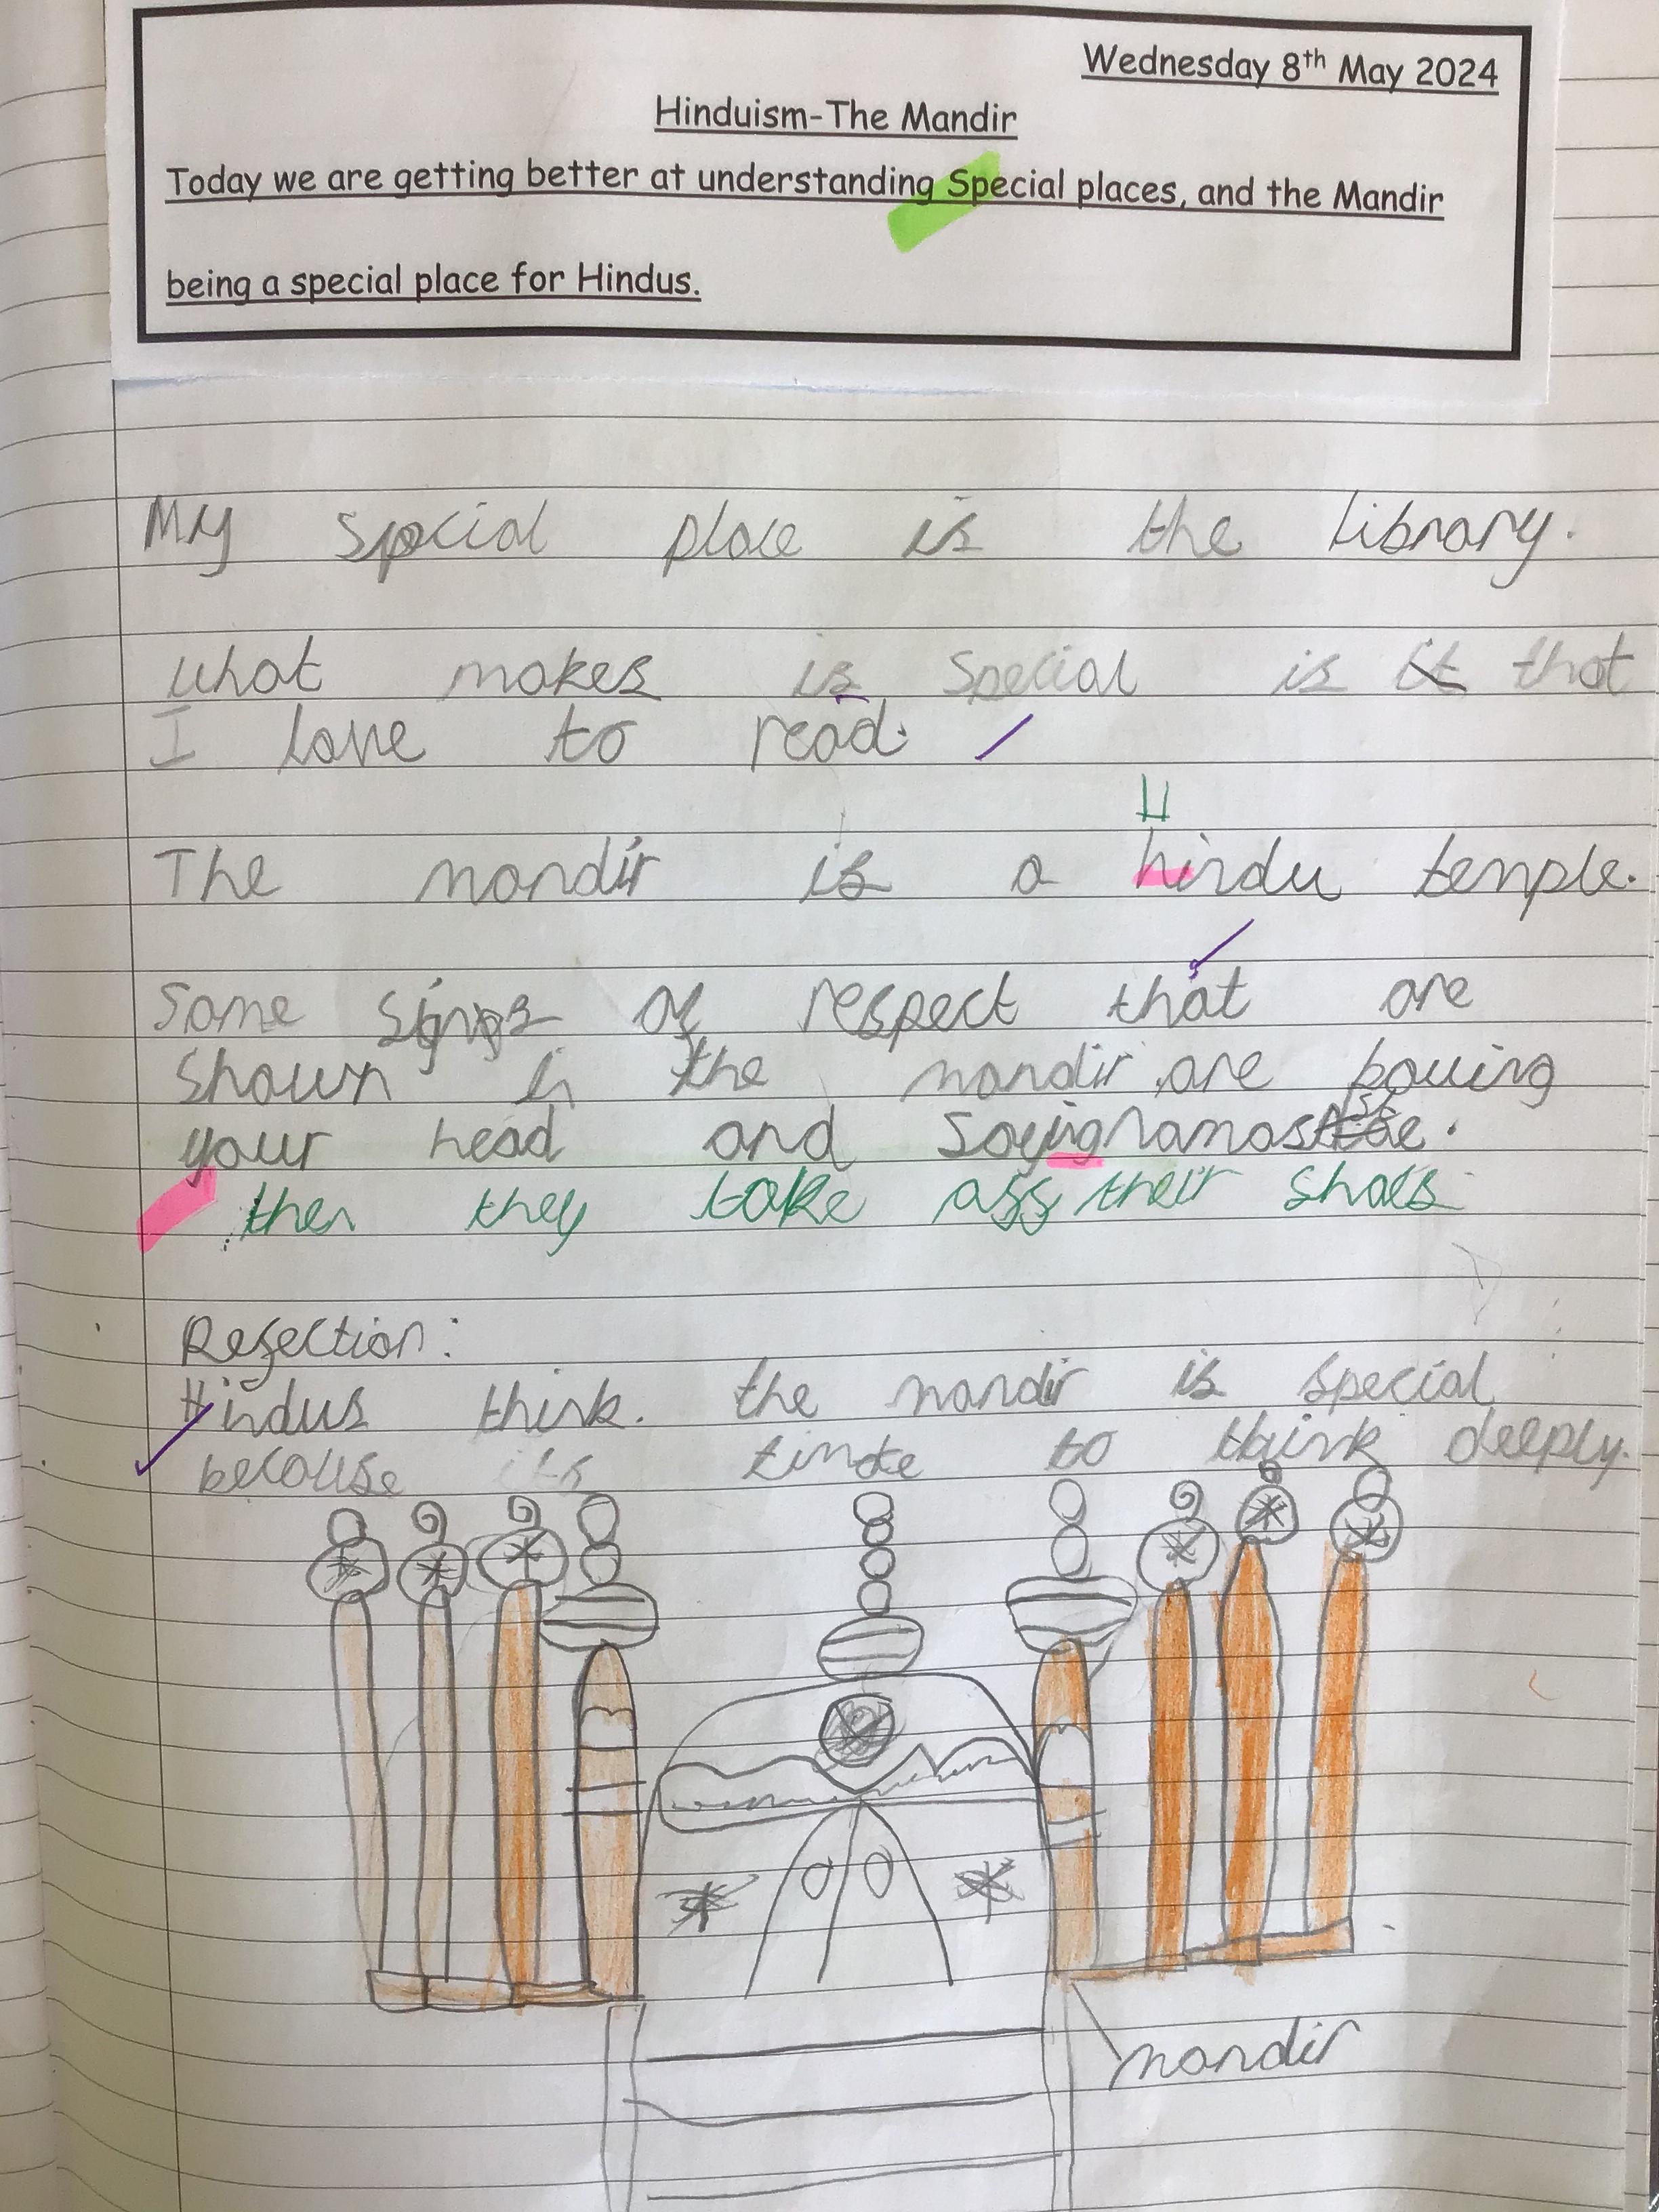 Wednesday 8th May 2024
Hinduism-The Mandir
Today we are getting better at understanding Special places, and the Mandir
being a special place for Hindus.
My special place is the library.
what makes is special is it that
I love to read.
H
The mandir is a hindu temple.
Some of respect that are
shown in the mandir are bowing
your head and saying namaste.
then they take off their shoes
Refection:
Hindus think. the mandir is special
because its to think deeply.
mandir